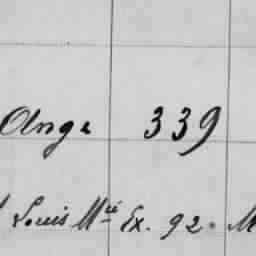 Ange 339
Louis M^ié Ex. 92. M